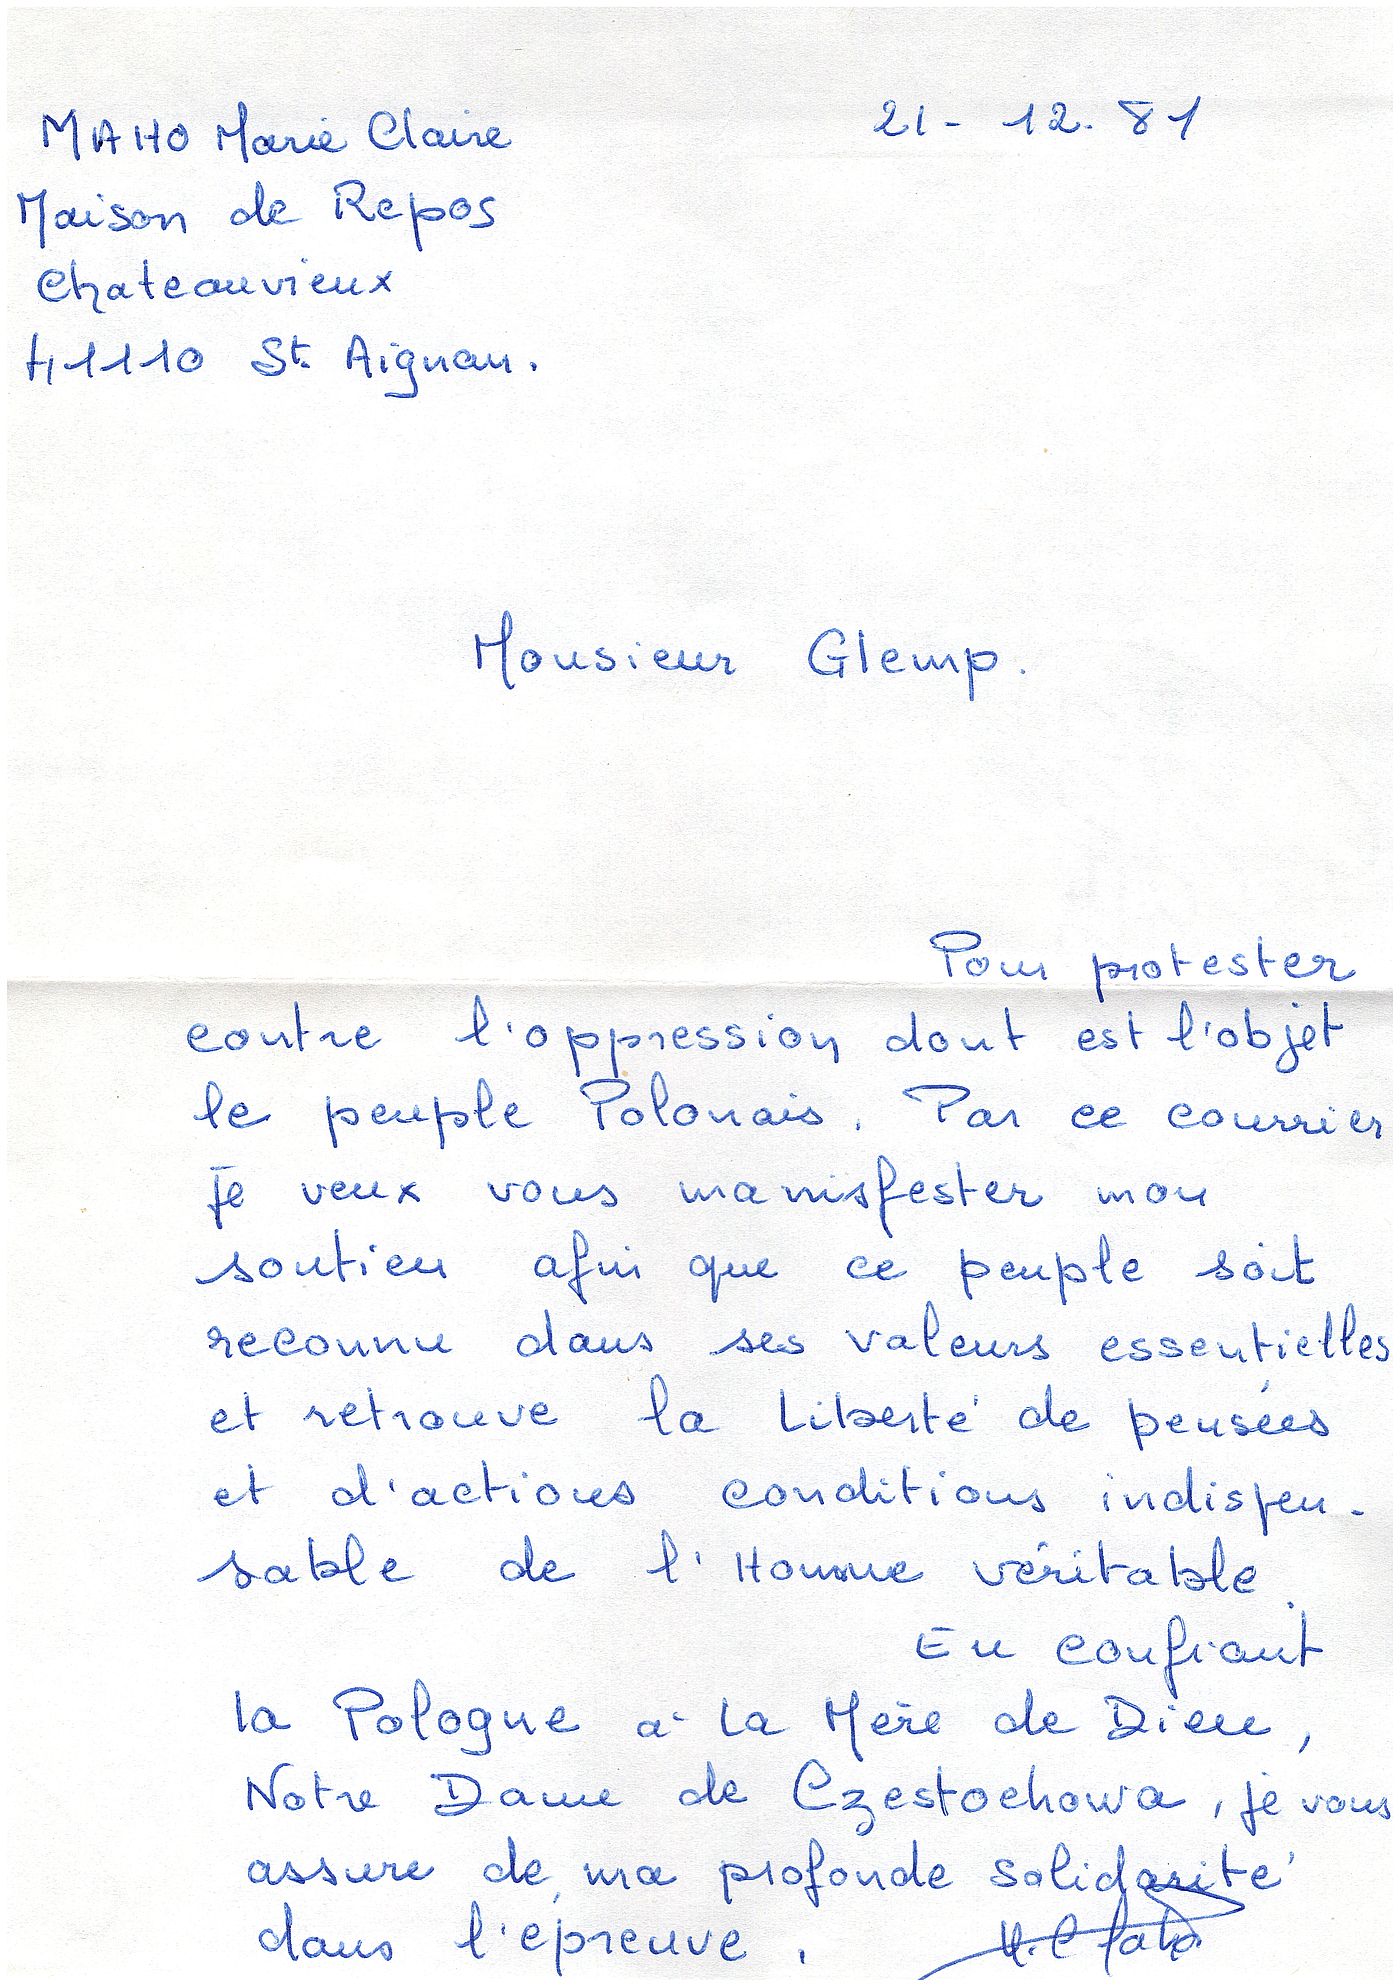 MAHO Marie Claire
21-12.81
Maison de Repos
Chateauvieux
41110 St. Aignan.
Monsieur Glemp.
Pour protester
contre l'oppression dont est l'objet
le peuple Polonais. Par ce courrier
je veux vous manisfester mon
soutien afin que ce peuple soit
reconnu dans ses valeurs essentielles
et retrouve la Liberté de pensées
et d'actions conditions indispen-
sable de l'Homme véritable.
En confiant
la Pologne à La Mère de Dieu,
Notre Dame de Czestochowa, je vous
assure de ma profonde solidarité
dans l'épreuve.